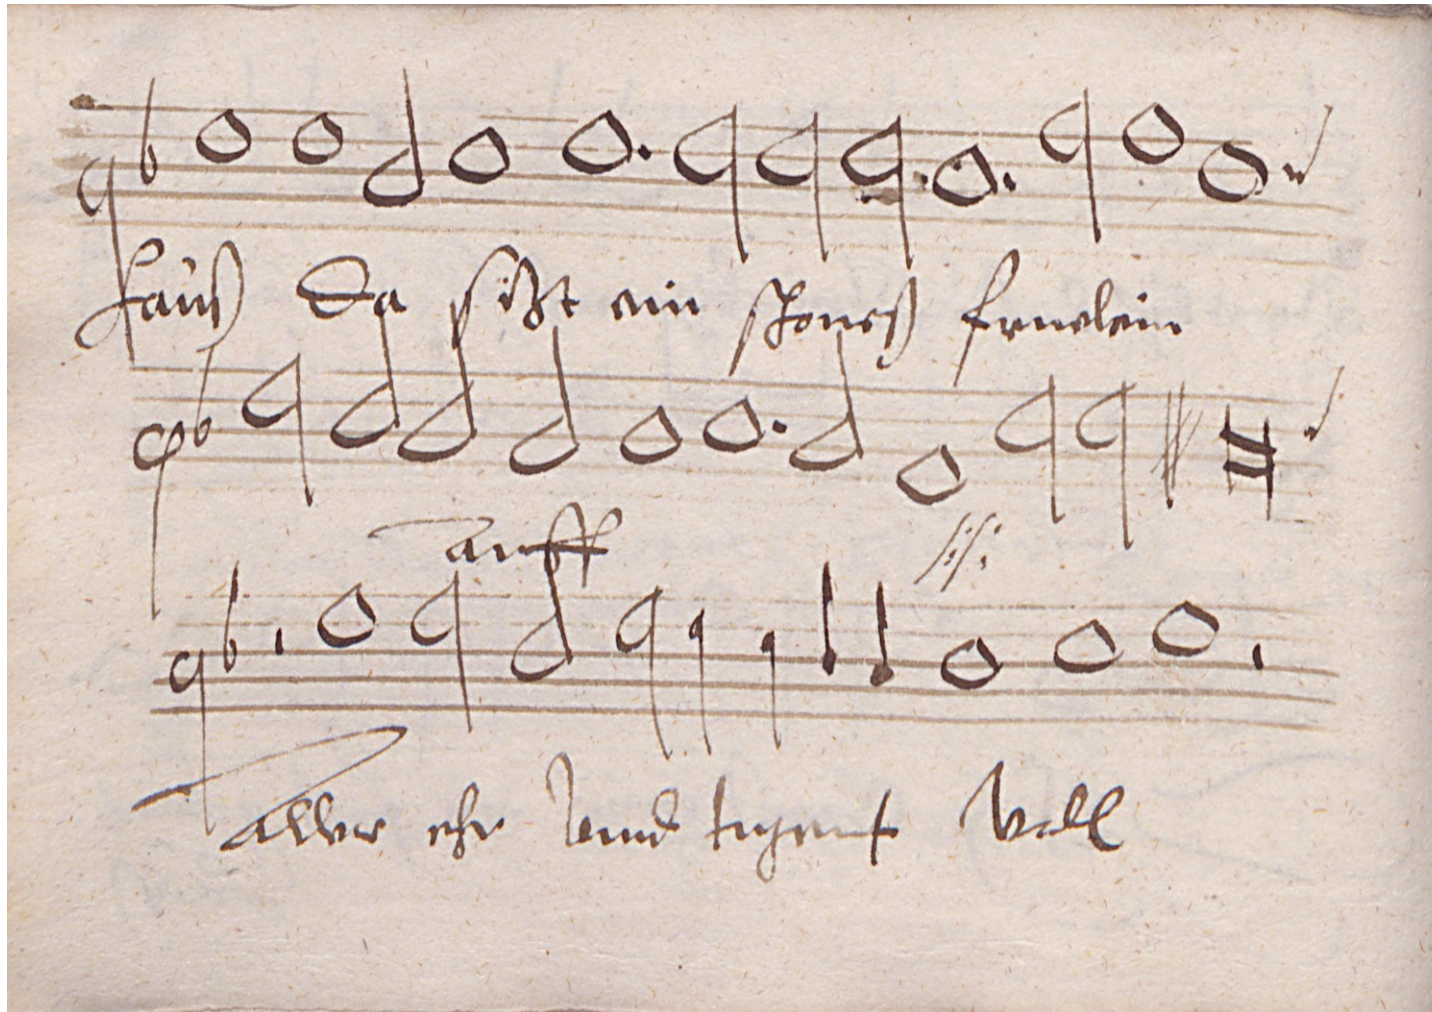 hauß Da sitzt ein schoneß freuelein
auff
aller ehr vnnd tugent voll